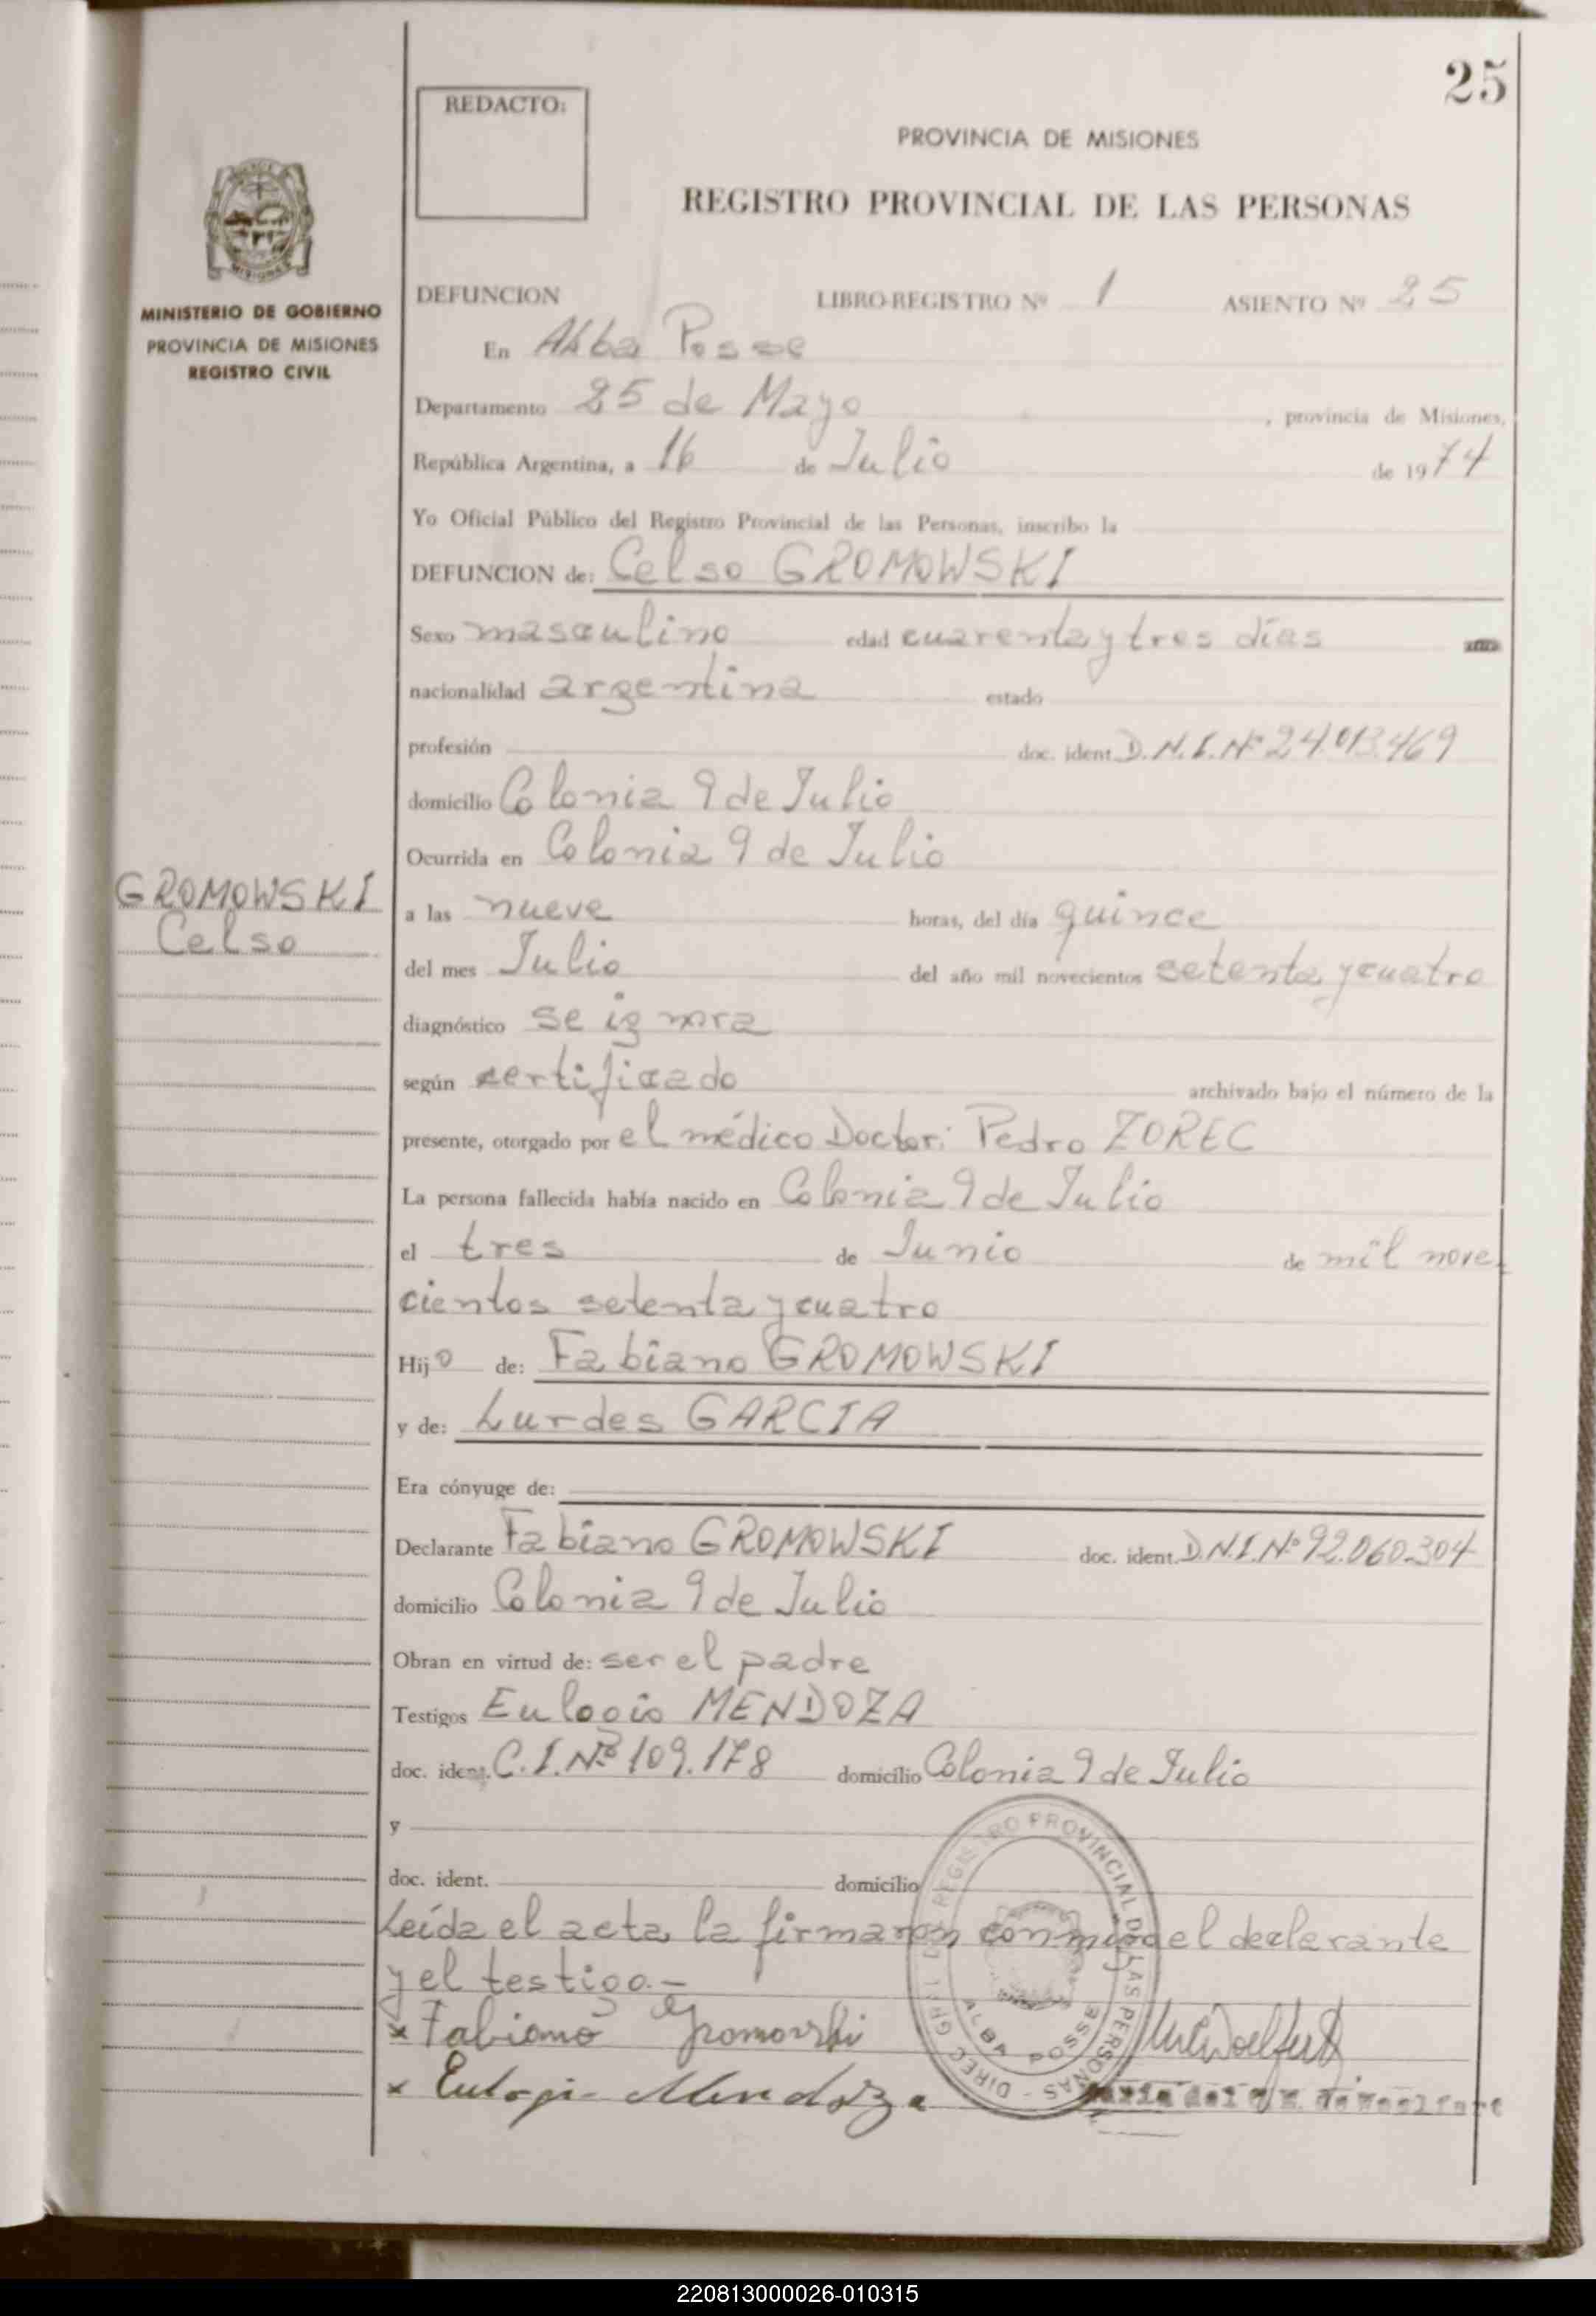 25
REDACTO:
PROVINCIA DE MISIONES
REGISTRO PROVINCIAL DE LAS PERSONAS
MINISTERIO DE GOBIERNO
PROVINCIA DE MISIONES
REGISTRO CIVIL
DEFUNCION LIBRO-REGISTRO Nº 1 ASIENTO Nº 25
En Alba Posse
Departamento 25 de Mayo, provincia de Misiones,
República Argentina, a 16 de Julio de 1974
Yo Oficial Público del Registro Provincial de las Personas, inscribo la
DEFUNCION de: Celso GROMOWSKI
Sexo masculino edad cuarenta y tres días
nacionalidad argentina estado
profesión doc. ident. D.N.I.Nº 24.013.469
domicilio Colonia 9 de Julio
Ocurrida en Colonia 9 de Julio
GROMOWSKI
Celso
a las nueve horas, del día quince
del mes Julio del año mil novecientos setenta y cuatro
diagnóstico se ignora
según certificado archivado bajo el número de la
presente, otorgado por el médico Doctor: Pedro ZOREC
La persona fallecida había nacido en Colonia 9 de Julio
el tres de Junio de mil nove
cientos setenta y cuatro
Hijo de: Fabiano GROMOWSKI
y de: Lurdes GARCIA
Era cónyuge de:
Declarante Fabiano GROMOWSKI doc. ident. D.N.I.Nº 92.060.304
domicilio Colonia 9 de Julio
Obran en virtud de: ser el padre
Testigos Eulogio MENDOZA
doc. ident. C.I.Nº 109.178 domicilio Colonia 9 de Julio
y
doc. ident. domicilio
Leída el acta, la firmaron conmigo el declarante
y el testigo.-
x Fabiano Gromowski
x Eulogio Mendoza
REGISTRO PROVINCIAL DE LAS PERSONAS - DIREC. GRAL.
ALBA POSSE
220813000026-010315